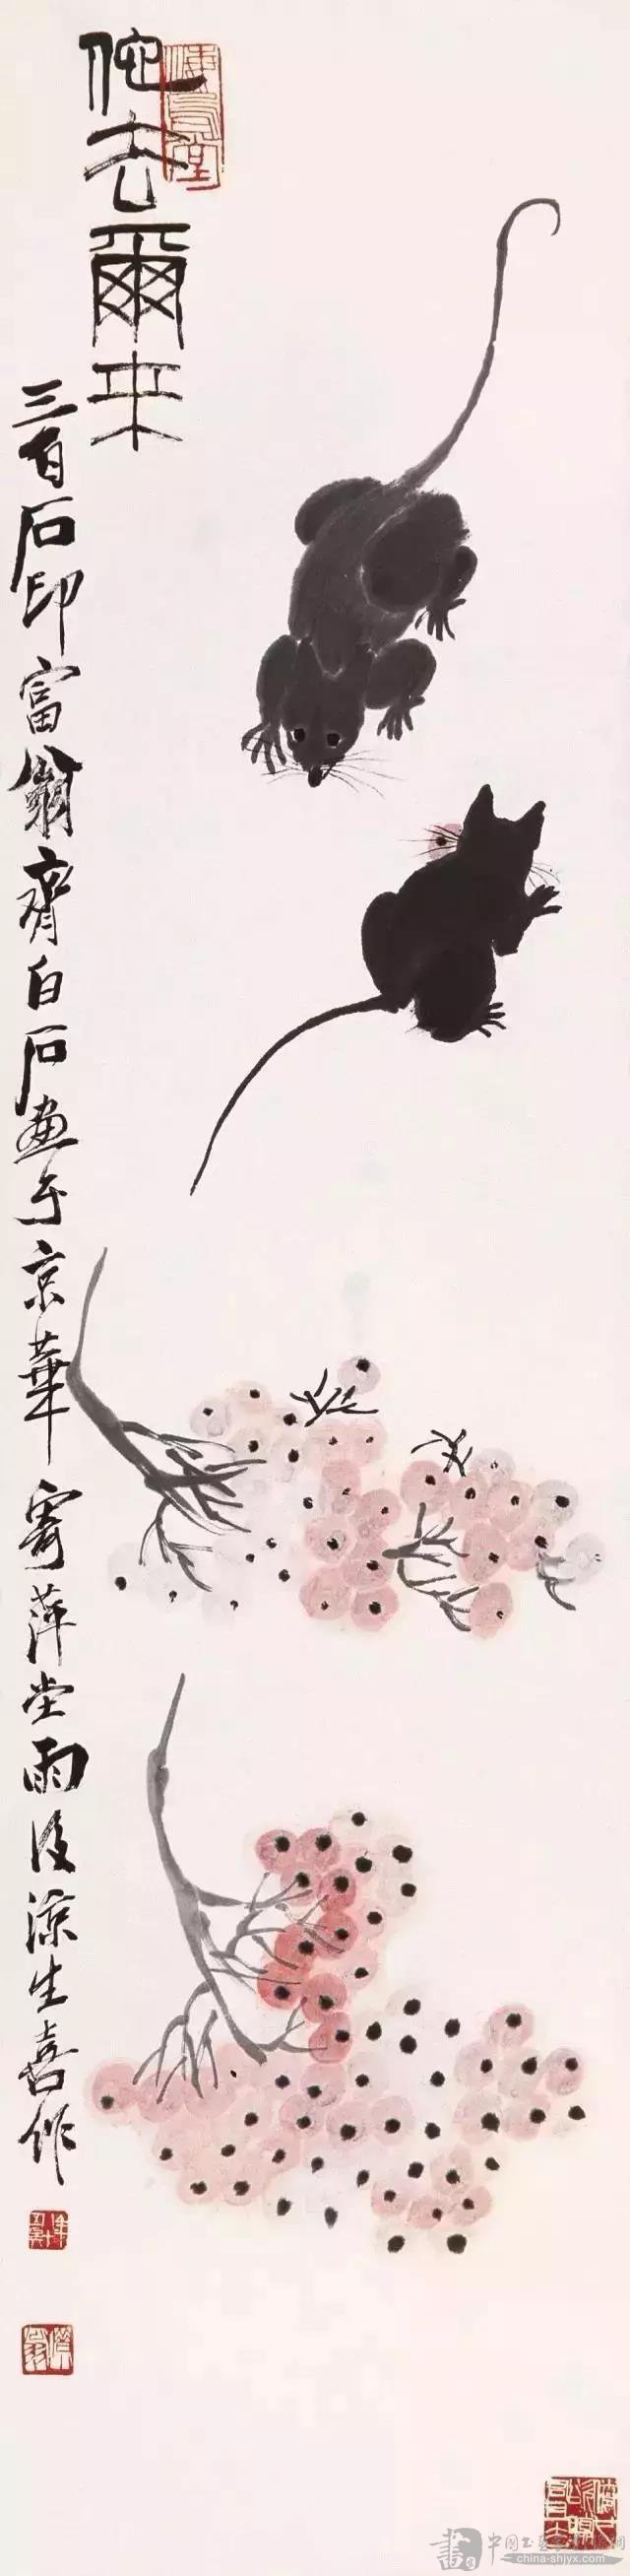 佗去爾来
三百石印富翁齊白石畫于京華寄萍堂雨後涼生喜作
悔烏堂
www.china-shjyx.com